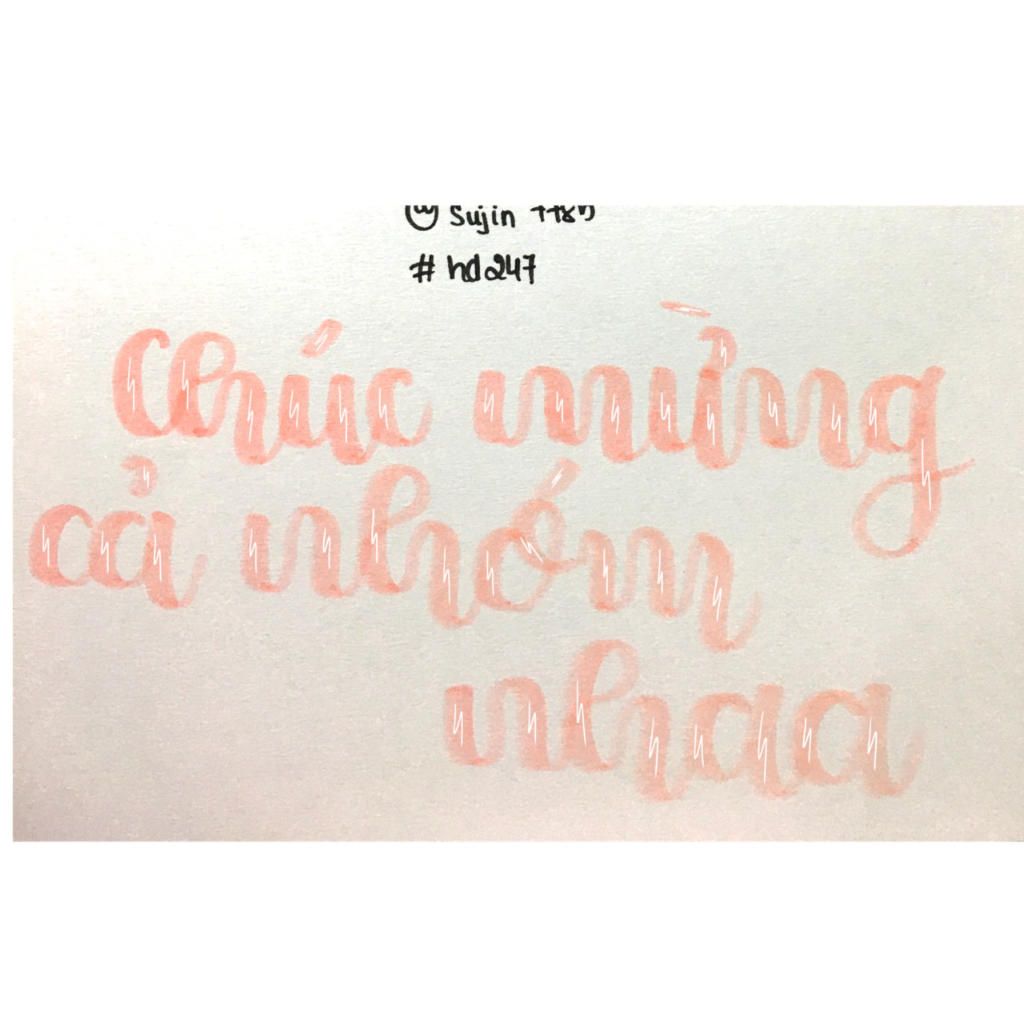 Sujin
#hd247
Chúc mừng
cả nhóm
nhaa